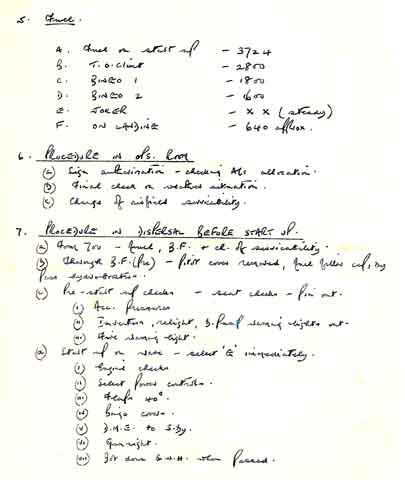 5. Fuel.
A. Fuel on start up - 3724
B. T.O. Climb - 2800
C. BINGO 1 - 1800
D. BINGO 2 - 1600
E. JOKER - X X (steady)
F. ON LANDING - 640 approx.
6. PROCEDURE IN OPS. ROOM
(a) Sign authorisation - checking A/c allocation.
(b) Final check on weather situation.
(c) Change of airfield serviceability.
7. PROCEDURE IN DISPERSAL BEFORE START UP.
(a) Form 700 - fuel, B.F. + ch. of serviceability.
(b) Through B.F. (Pre) - Pitot cover removed, fuel filler cap,
(c) Pre-start up checks - seat checks - pin out.
i Acc. pressures
ii Inverters, relight, warning lights out.
iii Fire warning light.
(d) Start up on - select 'E' immediately.
i Engine checks
ii Select Power controls.
iii Flaps 40°.
iv Bingo
v D.M.E. to S.By.
vi Gunsight.
vii down G.H.H. when passed.